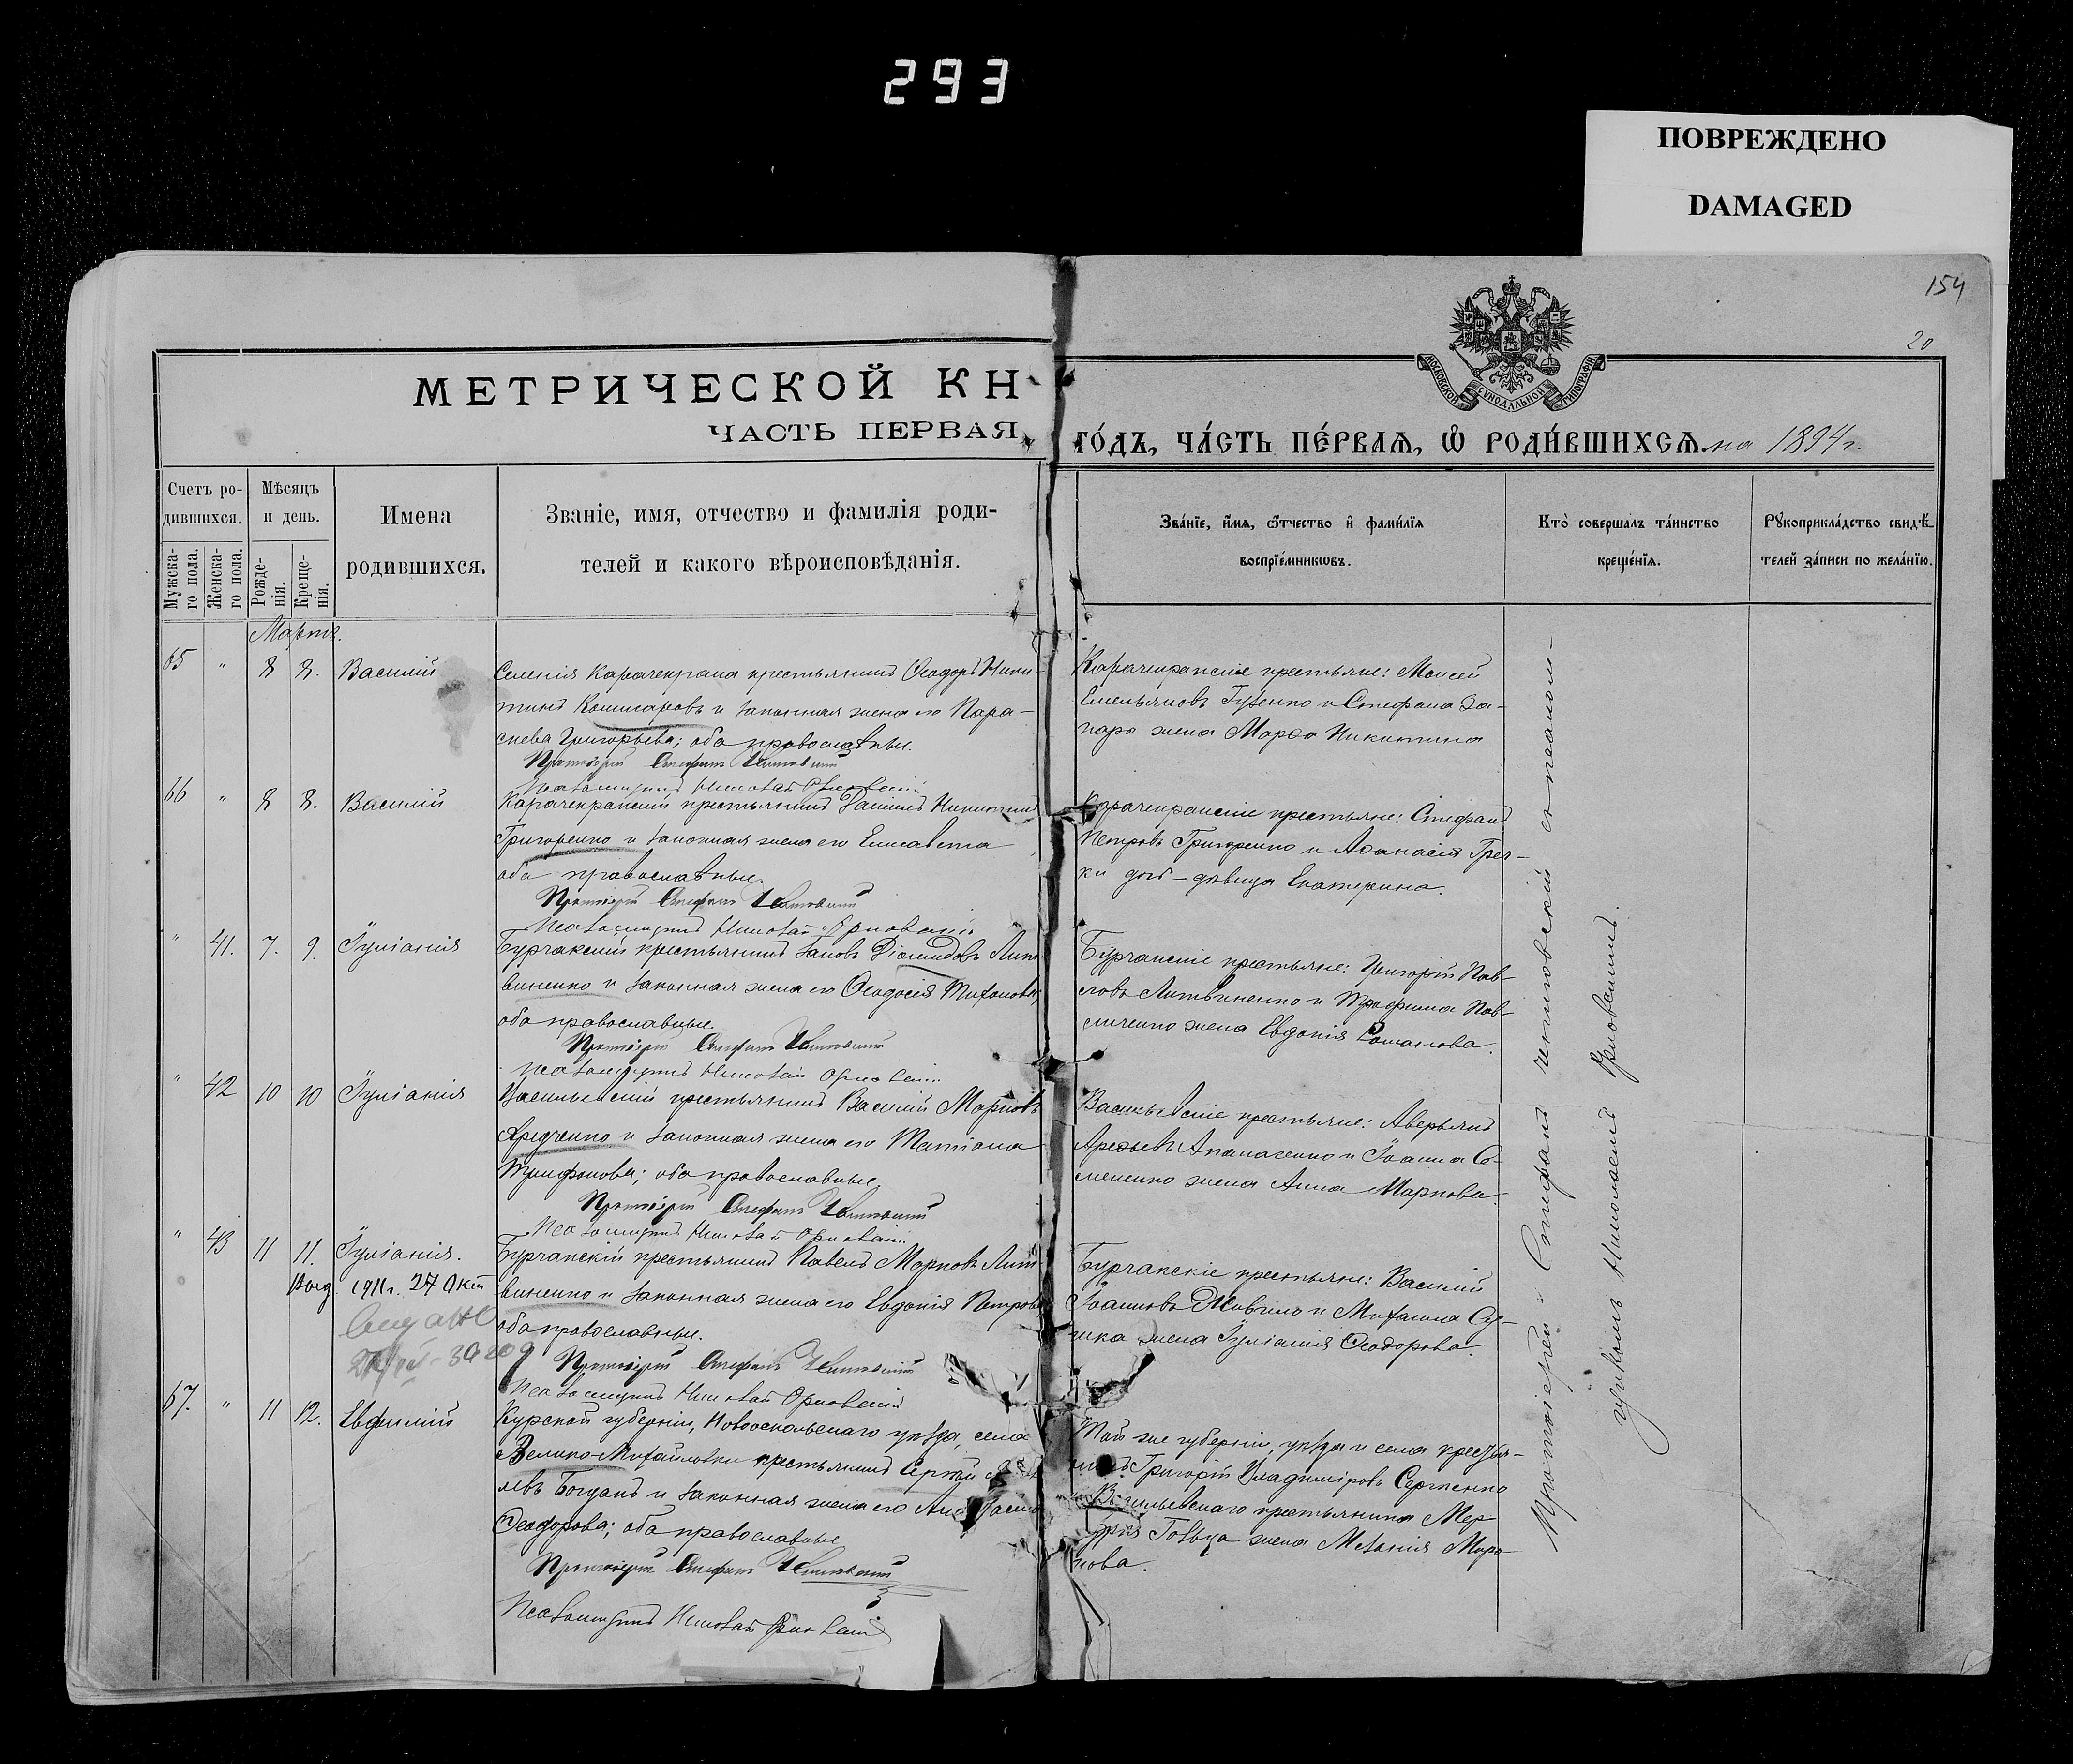 293
ПОВРЕЖДЕНО
DAMAGED
154
20
МЕТРИЧЕСКОЙ КН
ЧАСТЬ ПЕРВАЯ
МОСКОВСКОЙ СѴНОДАЛЬНОЙ ТИПОГРАФІИ
ГО́ДЪ, ЧА́СТЬ ПЕ́РВАЯ, Ѡ҆ РОДИ́ВШИХСЯ на 1894 г.
Счетъ ро-
дившихся.
Мужска-
го пола.
Женска-
го пола.
Мѣсяцъ
и день.
Рожде-
нія.
Креще-
нія.
Имена
родившихся.
Званіе, имя, отчество и фамилія роди-
телей и какого вѣроисповѣданія.
Зва́нїе, и҆́мя, ѻ҆́тчество и҆ фами́лїя
воспрїе́мникѡвъ.
Кто̀ соверша́лъ та́инство
креще́нїя.
Рꙋкоприкла́дство свидѣ́-
телей за́писи по жела́нїю.
Марта.
65 " 8 8. Василій
Селенія Карачекрака крестьянинъ Ѳеодоръ Ники-
тинъ Кошкаровъ и законная жена его Пара-
скева Григорьева; оба православные.
Протоіерей Стефанъ
Псаломщикъ Николай
Карачекракскіе крестьяне: Моисей
Емельяновъ Гузенко и Стефана За-
пары жена Марѳа Никитина
66 " 8 8. Василій
Карачекракскій крестьянинъ Даніилъ Никитинъ
Григоренко и законная жена его Елисавета
оба православные.
Протоіерей Стефанъ
Псаломщикъ Николай
Карачекракскіе крестьяне: Стефанъ
Петровъ Григоренко и Аѳанасія Греч-
ки дочь-дѣвица Екатерина.
" 41. 7. 9. Іуліанія
Бурчакскій крестьянинъ Іаковъ Діомидовъ Лит-
виненко и законная жена его Ѳеодосія Тихонова;
оба православные.
Протоіерей Стефанъ
Псаломщикъ Николай
Бурчакскіе крестьяне: Григорій Пав-
ловъ Литвиненко и Трофима Пав-
личенко жена Евдокія Романова.
" 42 10 10 Іуліанія
Васильевскій крестьянинъ Василій Марковъ
и законная жена его Татіана
Трифонова; оба православные.
Протоіерей Стефанъ
Псаломщикъ Николай
Васильевскіе крестьяне: Аверьянъ
Арефьевъ Апанасенко и Іоанна Се-
мененко жена Анна Маркова.
" 43 11 11. Іуліанія.
Выд. 1911 г. 27 Окт
Бурчакскій крестьянинъ Павелъ Марковъ Лит-
виненко и законная жена его Евдокія Петрова
оба православные.
Протоіерей Стефанъ
Псаломщикъ Николай
Бурчакскіе крестьяне: Василій
Іоанновъ и Михаила Су-
жена Іуліанія Ѳеодорова.
67. " 11 12. Евфимій
Курской губерніи, Новооскольскаго уѣзда, села
Велико-Михайловки крестьянинъ Сергѣй
левъ Богданъ и законная жена его
Ѳеодорова; оба православные
Протоіерей Стефанъ
Псаломщикъ Николай
Той же губерніи, уѣзда и села крестья-
нинъ Григорій Владиміровъ Сергіенко
Васильевскаго крестьянина Мер-
курія жена Меланія Миро-
нова.
Протоіерей Стефанъ съ псалом-
щикомъ Николаемъ